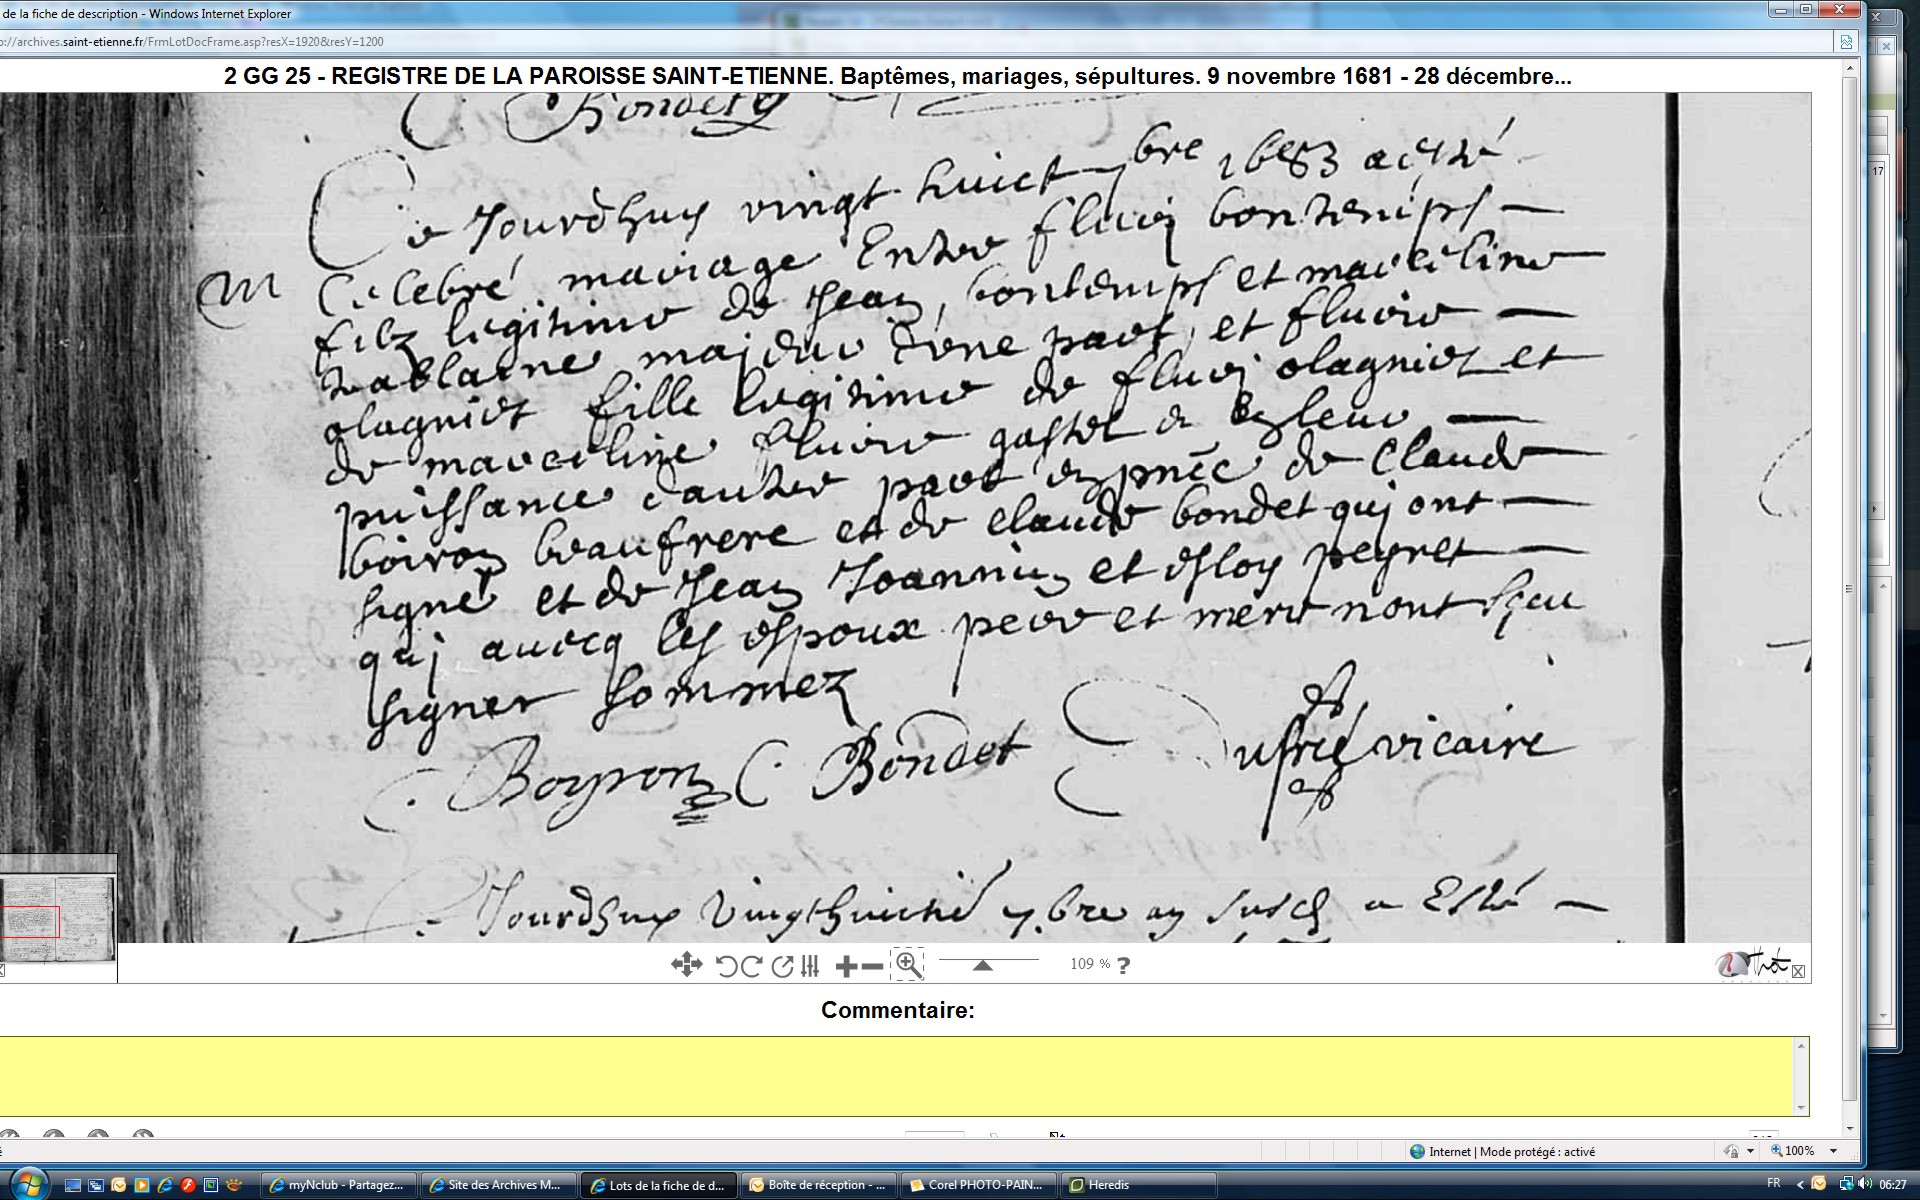 de la fiche de description - Windows Internet Explorer
://archives.saint-etienne.fr/FrmLotDocFrame.asp?resX=1920&resY=1200
2 GG 25 - REGISTRE DE LA PAROISSE SAINT-ETIENNE. Baptêmes, mariages, sépultures. 9 novembre 1681 - 28 décembre...
17
Ce Jourdhuy vingt huict bre 1683 a esté
M
Celebré mariage Entre fluri bontemps
filz legitime de Jean bontemps et marceline
majeur dune part, et flurie
olagnier fille legitime de fluri olagnier et
de marceline flurie de
puissance dautre part en pñce de Claude
boiron beaufrere et de claude bondet quj ont
signé et de Jean Joannin et esloy peyret
quj auecq les espoux pere et mere nont sçeu
signer sommez
Boyron C Bondet Dufrié vicaire
Jourdhuy Vingthuictié bre an susd a Esté
109 % ?
Commentaire:
Internet | Mode protégé : activé
100%
myNclub - Partagez...
Site des Archives M...
Lots de la fiche de d...
Boîte de réception - ...
Corel PHOTO-PAIN...
Heredis
FR
06:27